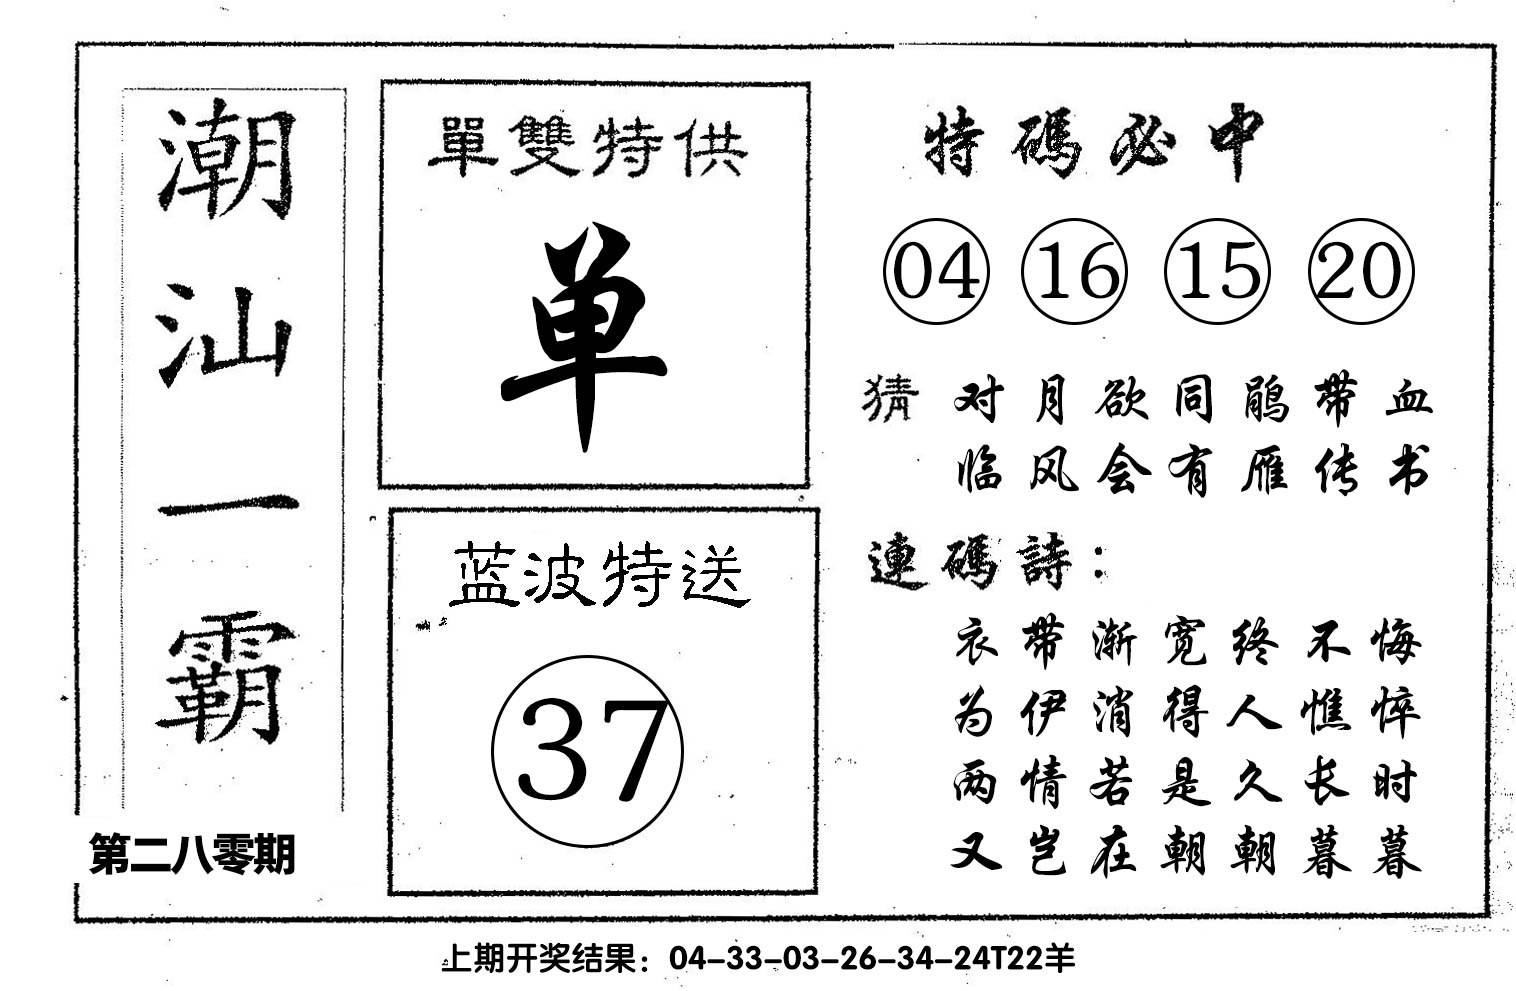 潮汕一霸
第二八零期
單雙特供
单
蓝波特送
37
特碼必中
04 16 15 20
猜 对月欲同鹃带血
临风会有雁传书
連碼詩：
衣带渐宽终不悔
为伊消得人憔悴
两情若是久长时
又岂在朝朝暮暮
上期开奖结果：04-33-03-26-34-24T22羊